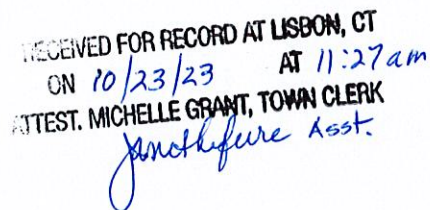 RECEIVED FOR RECORD AT LISBON, CT
ON 10/23/23 AT 11:27am
ATTEST. MICHELLE GRANT, TOWN CLERK
Asst.